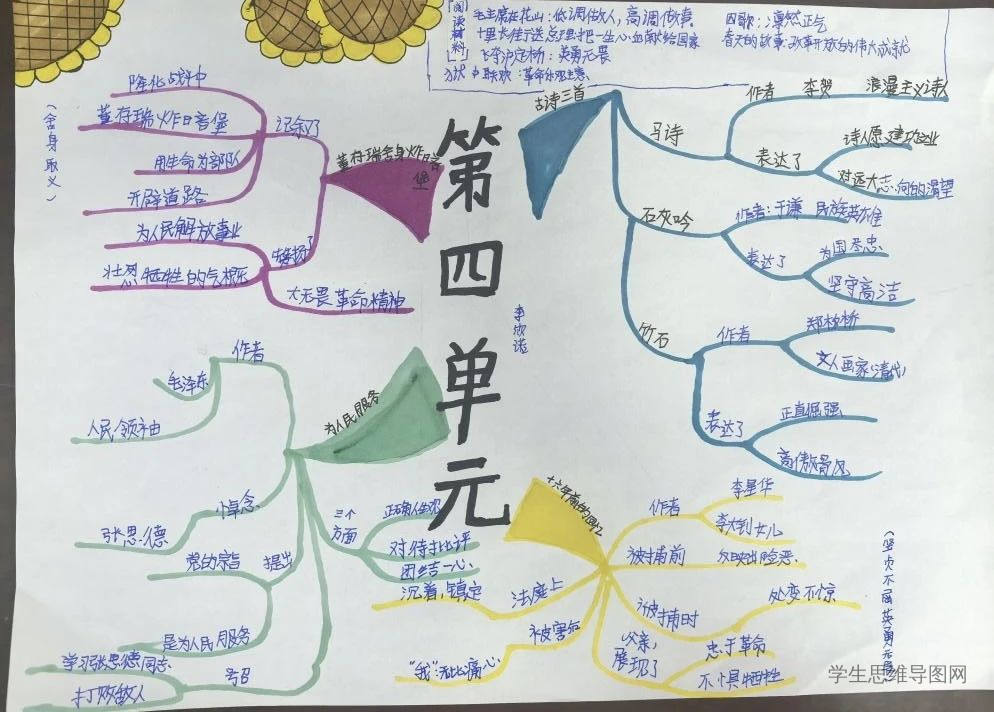 [阅读材料]
毛主席在花山：低调做人，高调做事。
十里长街送总理：把一生心血献给国家
飞夺泸定桥：英勇无畏
狱中联欢：革命乐观主意
囚歌：凛然正气
春天的故事：改革开放的伟大成就
第四单元
李欣诺
（舍身取义）
董存瑞舍身炸暗堡
记叙了
隆化战斗中
董存瑞炸暗堡
用生命为部队
开辟道路
赞扬了
为人民解放事业
壮烈牺牲的气概
大无畏革命精神
古诗三首
马诗
作者 李贺 浪漫主义诗人
表达了
诗人愿建功业
对远大志向的渴望
石灰吟
作者：于谦 民族英雄
表达了
为国尽忠
坚守高洁
竹石
作者
郑板桥
文人画家(清代)
表达了
正直倔强
高傲骨风
为人民服务
作者
毛泽东
人民领袖
悼念
张思德
提出
党的宗旨
是为人民服务
号召
学习张思德同志
打败敌人
三个方面
正确生死
对待批评
团结一心
十六年前的回忆
作者
李星华
李大钊女儿
被捕前 反映出险恶
被捕时 处变不惊
法庭上
沉着，镇定
被害后
“我”无比痛心
父亲，展现了
忠于革命
不惧牺牲
（坚贞不屈英勇无畏）
学生思维导图网